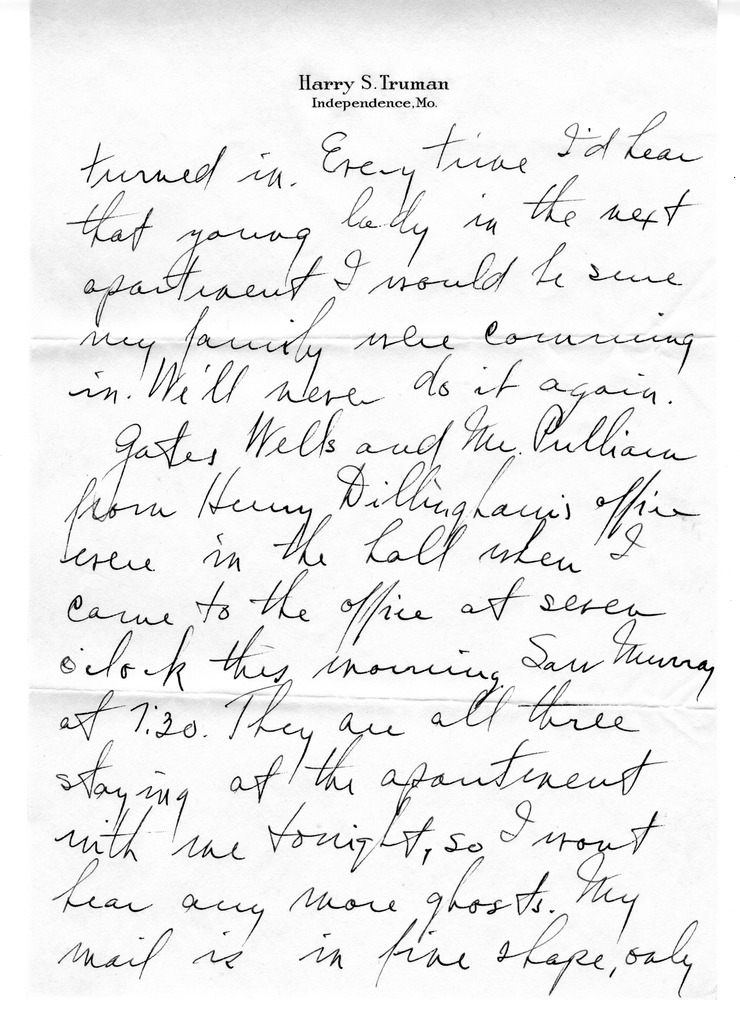 Harry S. Truman
Independence, Mo.
turned in. Every time I'd hear
that young lady in the next
apartment I would be sure
my family were comming
in. We'll never do it again.
Gates Wells and Mr. Pulliam
from Henry Dillingham's office
were in the hall when I
came to the office at seven
o'clock this morning. Saw Murray
at 7:30. They are all three
staying at the apartment
with me tonight, so I wont
hear any more ghosts. My
mail is in fine shape, only